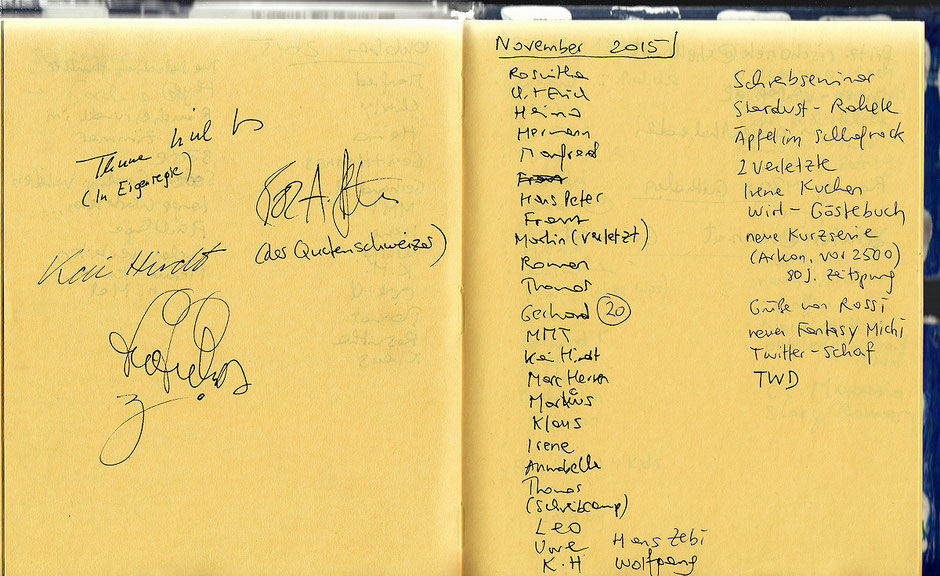 (in Eigenregie)
(der Quotenschweizer)
Kai Hirdt
November 2015
Roswitha
U. + Erich
Heinz
Hermann
Manfred
Franz
Hans Peter
Franz
Martin (verletzt)
Roman
Thomas
Gerhard 20
MMT
Kai Hirdt
Marc Herren
Markus
Klaus
Irene
Annabelle
Thomas
(Schreibcamp)
Leo
Uwe
K.H.
Hans Zebi
Wolfgang
Schreibseminar
Stardust - Rakete
Äpfel im Schlafrock
2 Verletzte
Irene Kuchen
Wirt - Gästebuch
neue Kurzserie
(Arkon, vor 2500)
Grüße von Rossi
neuer Fantasy Michi
Twitter - Schaf
TWD